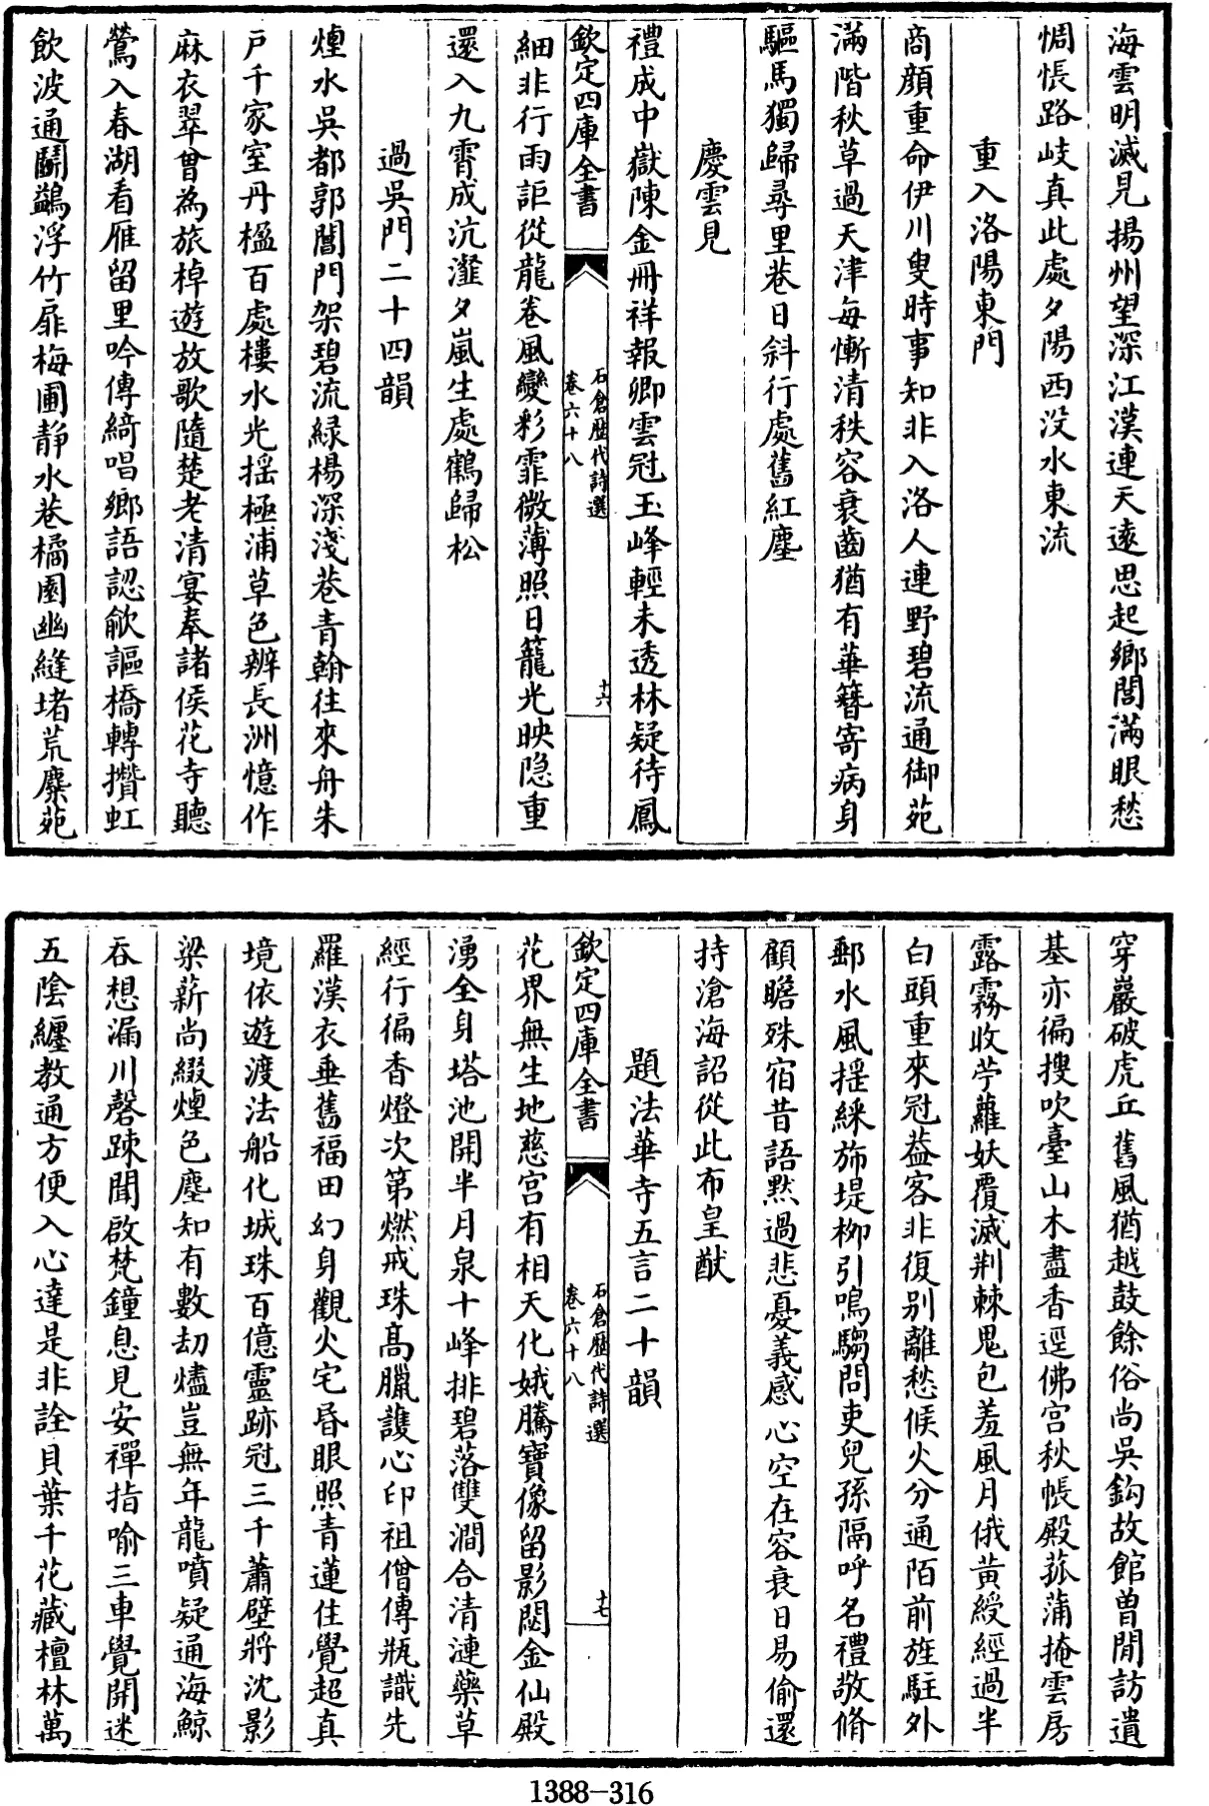 海雲明滅見揚州望深江漢連天逺思起鄉閭滿眼愁
惆悵路岐真此處夕陽西没水東流
重入洛陽東門
商顔重命伊川叟時事知非入洛人連野碧流通御苑
滿階秋草過天津每慚清秩容衰齒猶有華簪寄病身
驅馬獨歸尋里巷日斜行處舊紅塵
慶雲見
禮成中嶽陳金冊祥報卿雲冠玉峰輕未透林疑待鳳
欽定四庫全書
石倉歴代詩選
卷六十八
十六
細非行雨詎從龍卷風變彩霏微薄照日籠光映隠重
還入九霄成沆瀣夕嵐生處鶴歸松
過吳門二十四韻
煙水吳都郭閶門架碧流緑楊深淺巷青翰往來舟朱
戸千家室丹楹百處樓水光揺極浦草色辨長洲憶作
麻衣翠曾為旅棹遊放歌隨楚老清宴奉諸侯花寺聽
鶯入春湖看雁留里吟傳綺唱鄉語認歈謳橋轉攢虹
飲波通鬭鷁浮竹扉梅圃靜水巷橘園幽縫堵荒麋苑
穿巖破虎丘舊風猶越鼓餘俗尚吳鈎故館曽閒訪遺
基亦徧搜吹臺山木盡香逕佛宫秋帳殿菰蒲掩雲房
露霧收苧蘿妖覆滅荆棘鬼包羞風月俄黄綬經過半
白頭重來冠葢客非復别離愁候火分通陌前旌駐外
郵水風揺綵斾堤栁引鳴騶問吏兒孫隔呼名禮敬脩
顧瞻殊宿昔語黙過悲憂義感心空在容衰日易偷還
持滄海詔從此布皇猷
題法華寺五言二十韻
欽定四庫全書
石倉歴代詩選
卷六十八
十七
花界無生地慈宫有相天化娥騰寶像留影閟金仙殿
湧全身塔池開半月泉十峰排碧落雙澗合清漣藥草
經行徧香燈次第燃戒珠髙臘䕶心印祖僧傳瓶識先
羅漢衣垂舊福田幻身觀火宅昏眼照青蓮住覺超真
境依遊渡法船化城珠百億靈跡冠三千蕭壁將沈影
梁薪尚綴煙色塵知有數劫燼豈無年龍噴疑通海鯨
吞想漏川磬踈聞啟梵鐘息見安禪指喻三車覺開迷
五隂纒教通方便入心達是非詮貝葉千花藏檀林萬
1388-316